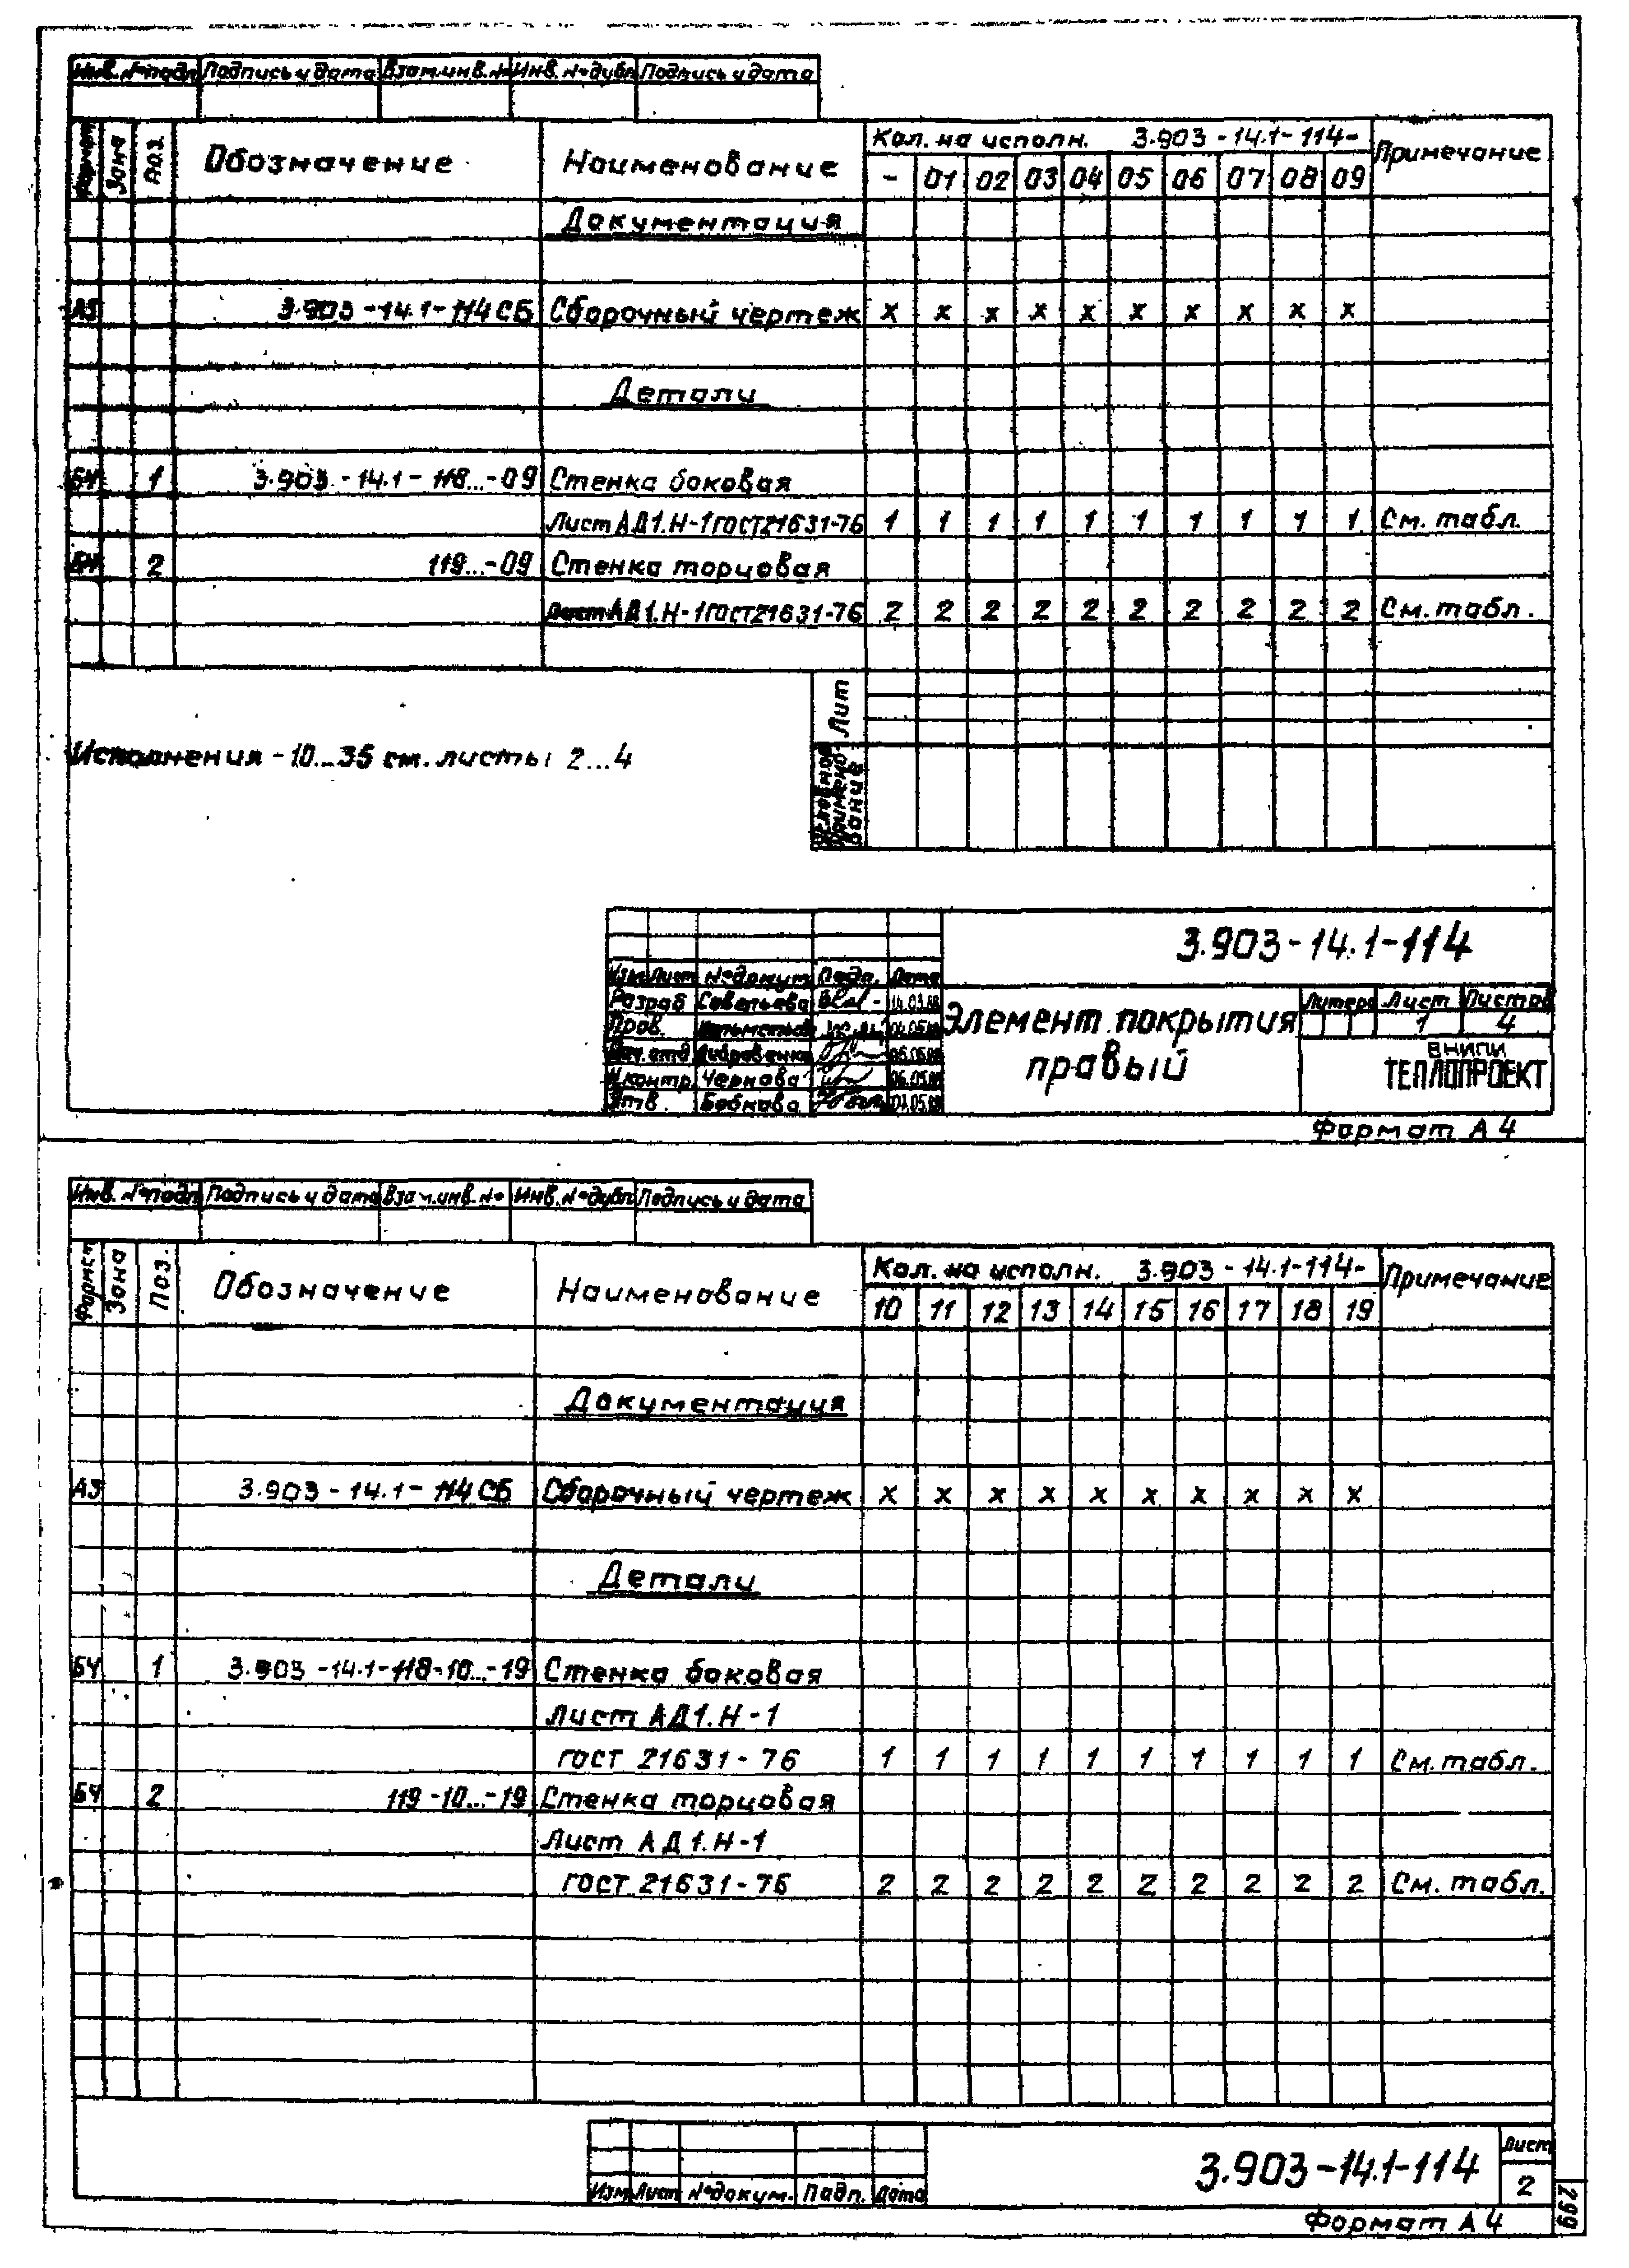 Инв. № подл Подпись и дата Взам.инв.№ Инв.№ дубл Подпись и дата
Формат Зона Поз. Обозначение Наименование Кол. на исполн. 3.903-14.1-114- Примечание
- 01 02 03 04 05 06 07 08 09
Документация
А3 3.903-14.1-114СБ Сборочный чертеж х х х х х х х х х х
Детали
БЧ 1 3.903.-14.1-118...-09 Стенка боковая
Лист АД1.Н-1 ГОСТ21631-76 1 1 1 1 1 1 1 1 1 1 См. табл.
БЧ 2 119...-09 Стенка торцовая
Лист АД1.Н-1 ГОСТ21631-76 2 2 2 2 2 2 2 2 2 2 См. табл.
Лит
Исполнения -10...35 см. листы 2...4
3.903-14.1-114
Изм Лист № докум Подп. Дата
Разраб Савельева 14.03.88
Пров. 04.05.88
Нач. отд 05.05.88
Н.контр. Чернова 06.05.88
Утв. Бобкова 07.05.88
Элемент покрытия
правый
Литера Лист Листов
1 4
ВНИПИ
ТЕПЛОПРОЕКТ
Формат А4
Инв. № подл Подпись и дата Взам.инв.№ Инв.№ дубл Подпись и дата
Формат Зона Поз. Обозначение Наименование Кол. на исполн. 3.903-14.1-114- Примечание
10 11 12 13 14 15 16 17 18 19
Документация
А3 3.903-14.1-114СБ Сборочный чертеж х х х х х х х х х х
Детали
БЧ 1 3.903-14.1-118-10...-19 Стенка боковая
Лист АД1.Н-1
ГОСТ 21631-76 1 1 1 1 1 1 1 1 1 1 См. табл.
БЧ 2 119-10...-19 Стенка торцовая
Лист АД1.Н-1
ГОСТ 21631-76 2 2 2 2 2 2 2 2 2 2 См. табл.
Изм Лист № докум. Подп. Дата
3.903-14.1-114
Лист
2
Формат А4
299